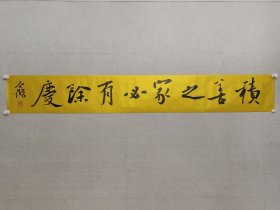 積善之家必有餘慶
启功